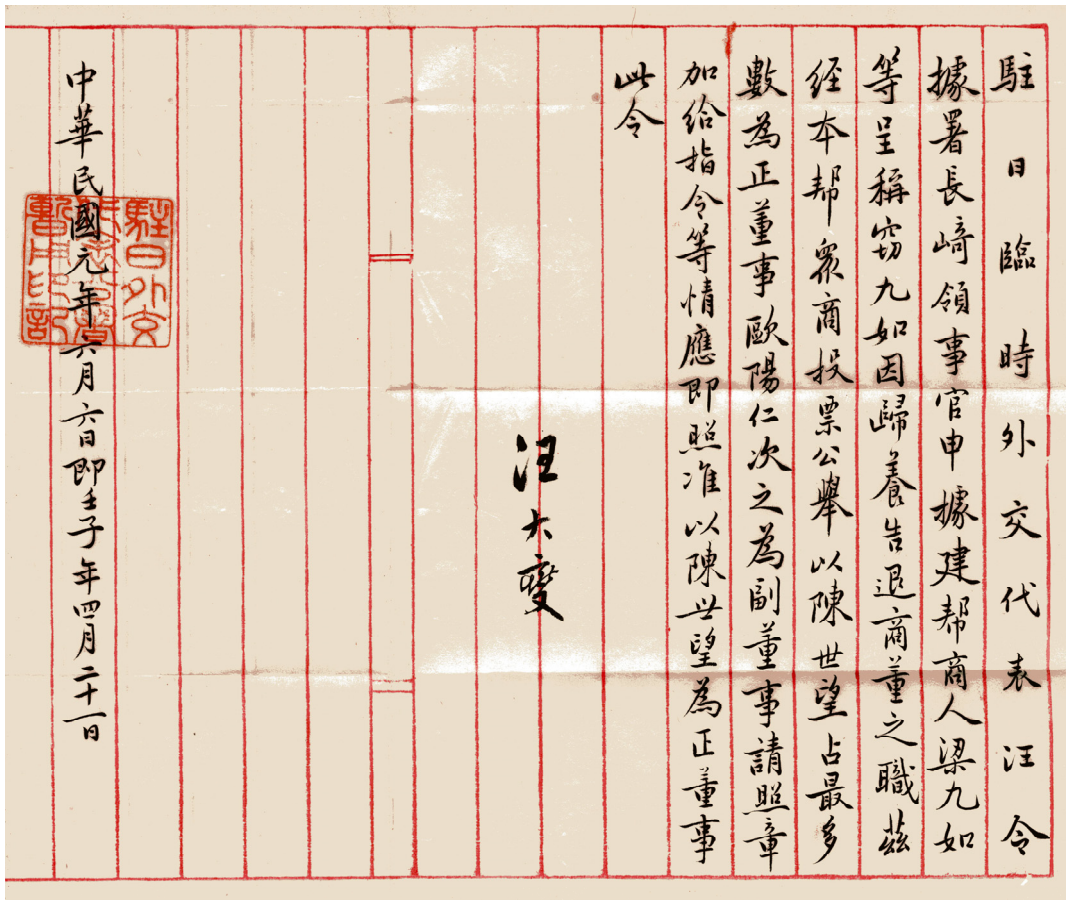 駐日臨時外交代表汪令
據署長﨑領事官申據建帮商人梁九如
等呈稱窃九如因歸養告退商董之職茲
經本帮眾商投票公舉以陳世望占最多
數為正董事歐陽仁次之為副董事請照章
加給指令等情應即照准以陳世望為正董事
此令
汪大燮
中華民國元年六月六日即壬子年四月二十一日
駐日外交
暫用印記